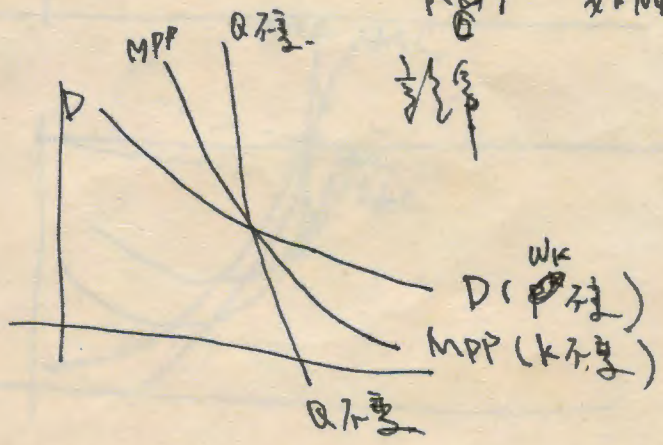 MPP
Q不變
D
WK
D( 不變)
MPP (K不變)
Q不變